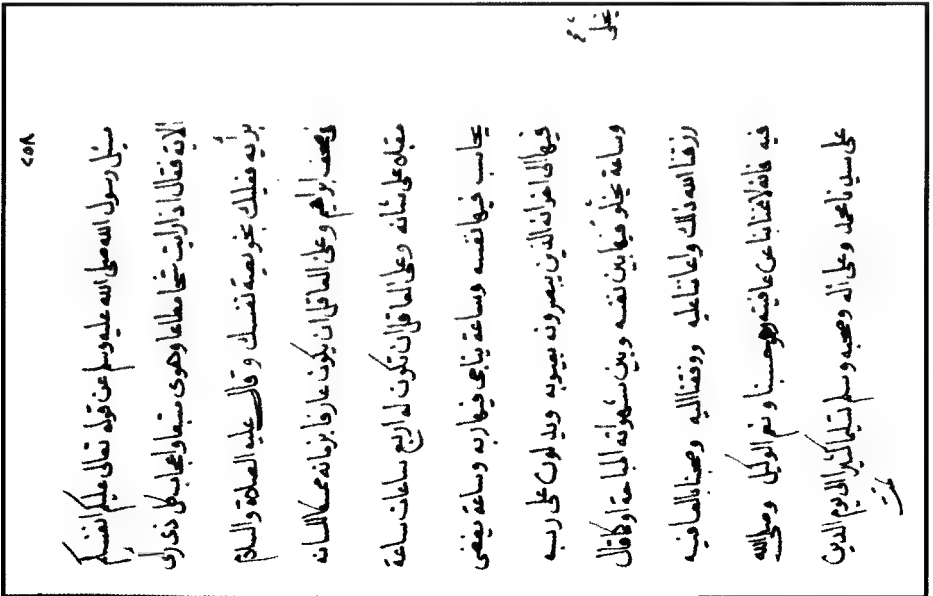 ٢٥٨
سئل رسول الله صلى الله عليه وسلم عن قوله تعالى عليكم انفسكم
الاية فقال اذا رايت شحا مطاعا وهوى متبعا واعجاب كل ذى راى
برأيه فعليك بخويصة نفسك وقال عليه الصلاة والسلام
فى صحف ابراهيم وعلى العاقل ان يكون عارفا بزمانه ممسكا للسانه
مقبلا على شانه وعلى العاقل ان تكون له اربع ساعات ساعة
يحاسب فيها نفسه وساعة يناجى فيها ربه وساعة يفضى
فيها الى اخوانه الذين يبصرونه بعيوبه ويدلونه على ربه
وساعة يخلو فيها بين نفسه وبين شهواته المباحة او كما قال
رزقنا الله ذلك واعاننا عليه ووفقنا اليه وصحبنا بالعافية
فيه فانه لا غنا بنا عن عافيته وهو حسبنا ونعم الوكيل وصلى الله
على سيدنا محمد وعلى اله وصحبه وسلم تسليما كثيرا الى يوم الدين
تمت